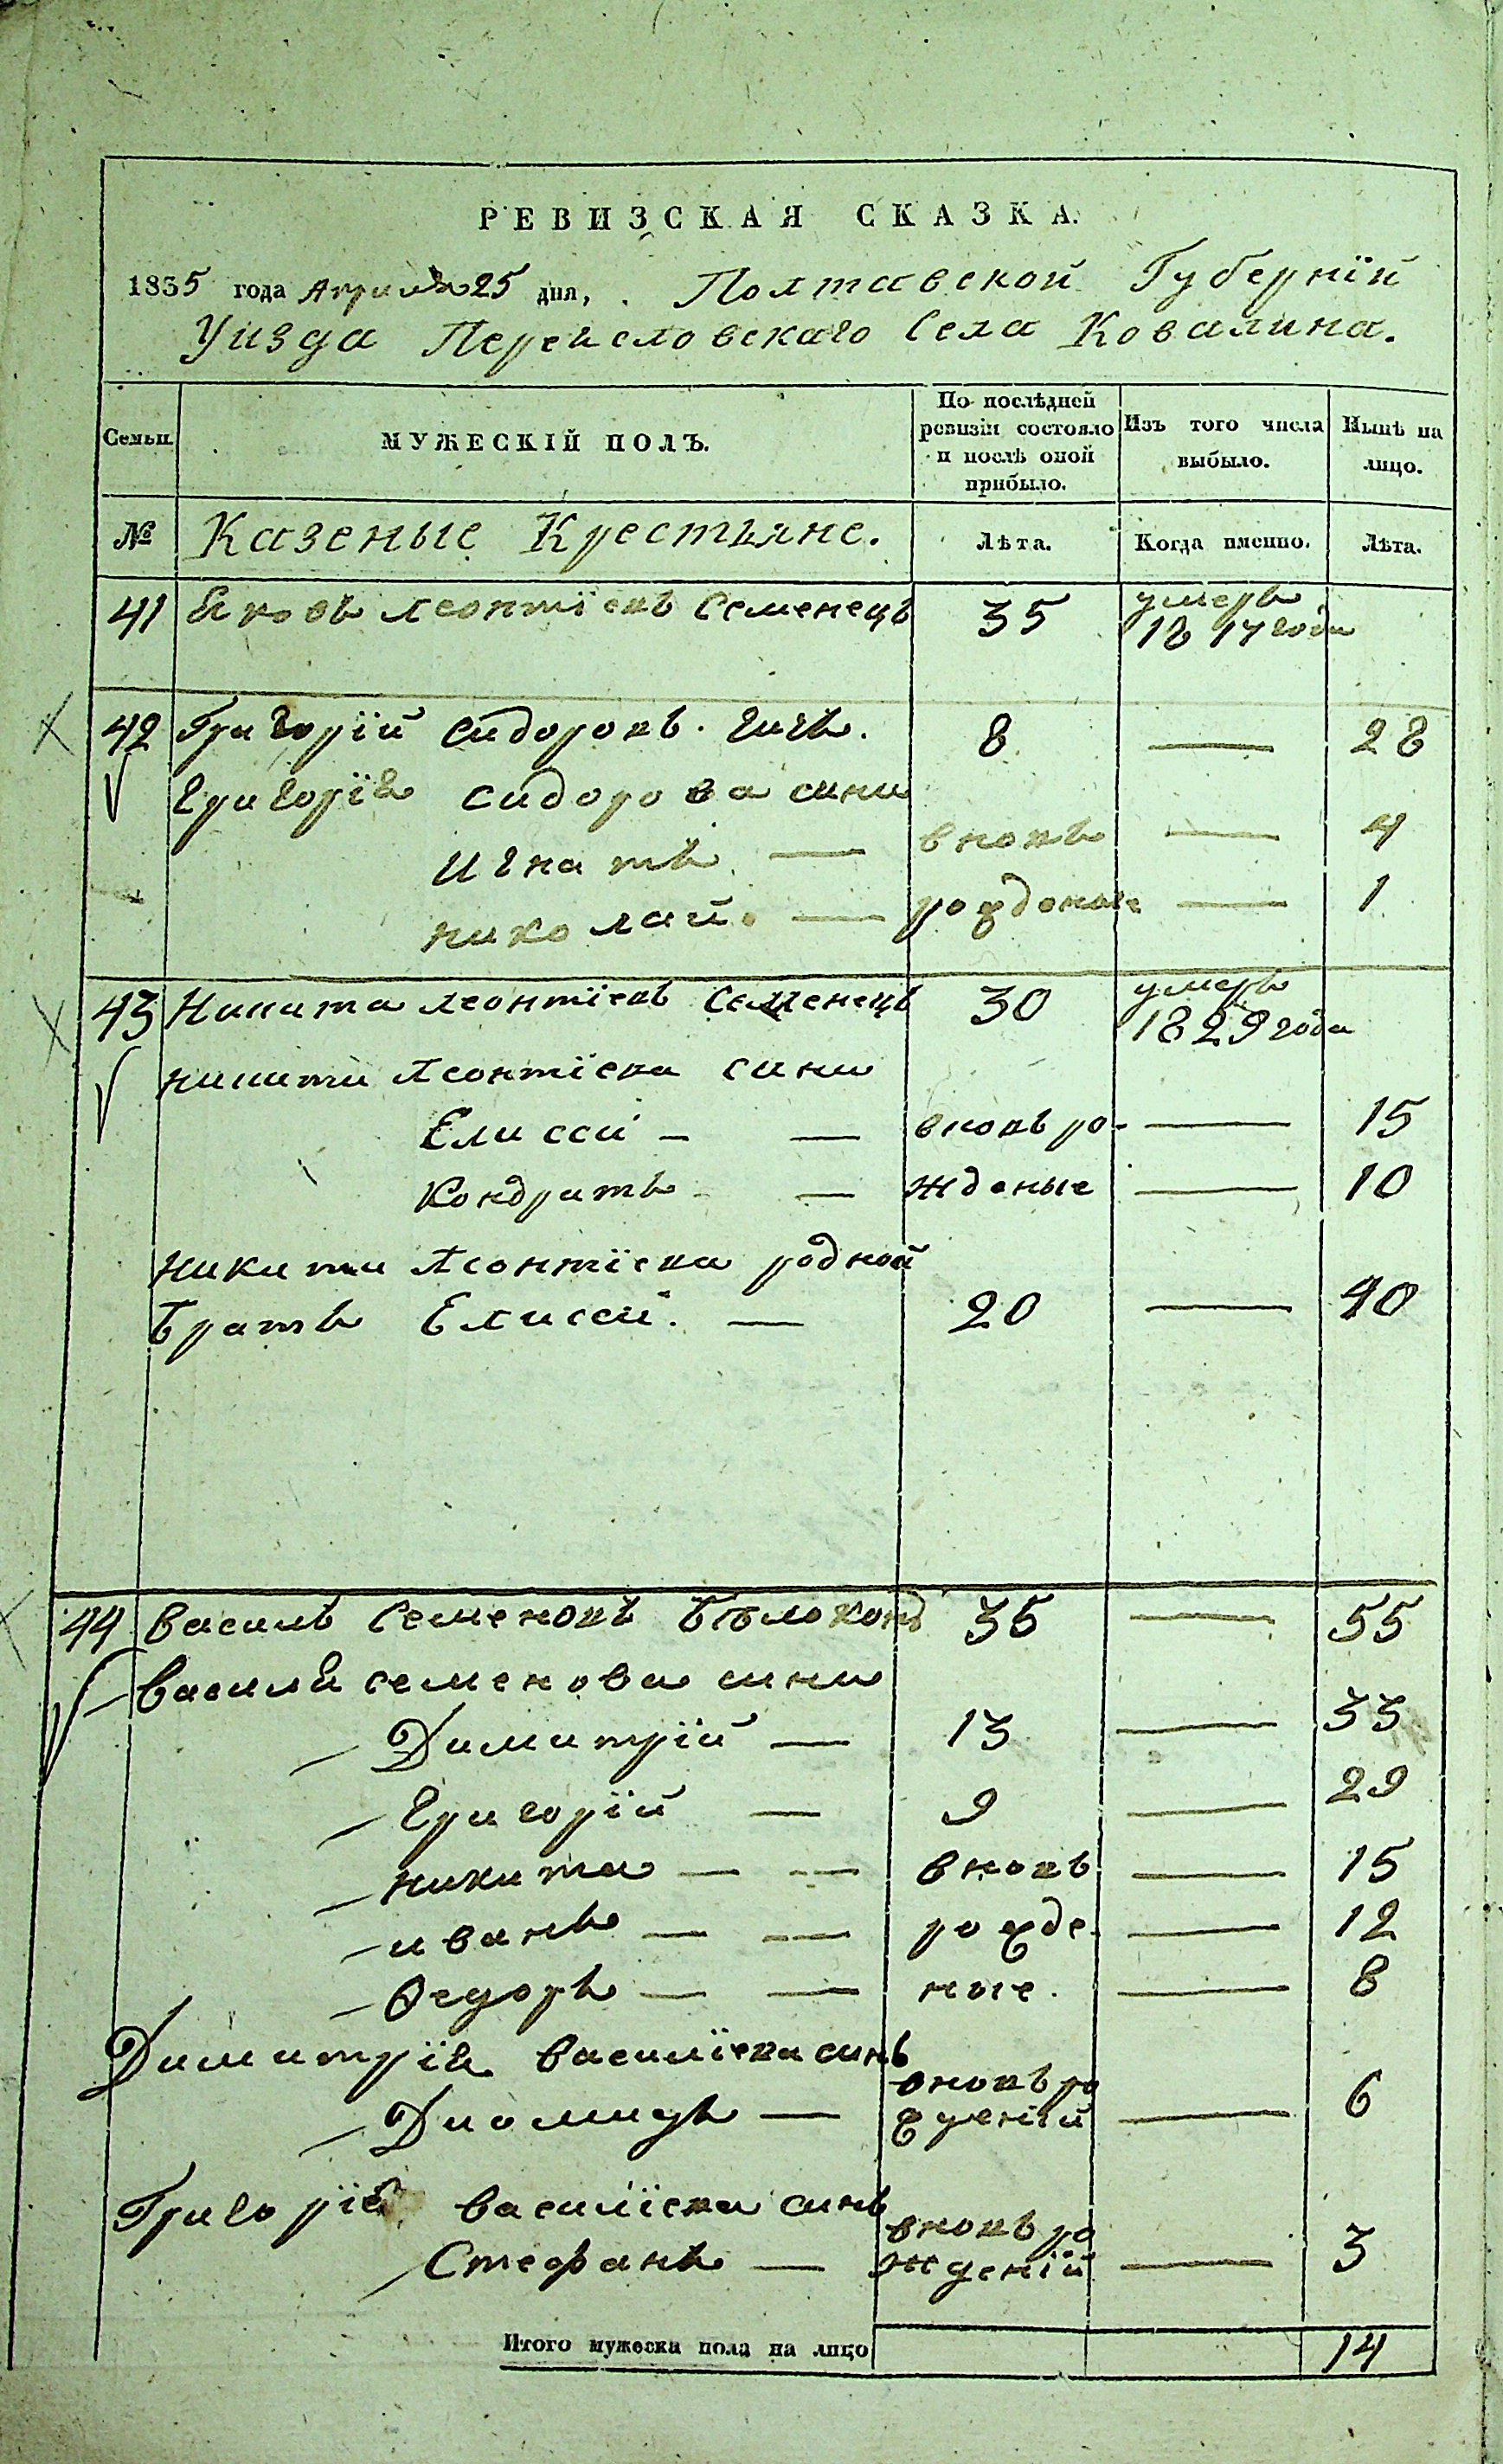 РЕВИЗСКАЯ СКАЗКА.
1835 года Априля 25 дня, Полтавской Губернїй
Уизда Переясловскаго Села Ковалина.
Семьи. МУЖЕСКІЙ ПОЛЪ. По послѣдней ревизіи состояло и послѣ оной прибыло. Изъ того числа выбыло. Нынѣ на лицо.
№ Казеные Крестьяне. Лѣта. Когда именно. Лѣта.
41 Яковъ Леонтїевъ Семенецъ 35 умеръ 1817 года
42 Григорїй Сидоровъ 8 — 28
Григорїя Сидорова сини
Игнатъ — вновь — 4
николай — рожденые — 1
43 Никита Леонтїевъ Семенецъ 30 умеръ 1829 года
никити Леонтїева сини
Елисей — — вновь ро- — 15
Кондратъ — — жденые — 10
никити Леонтїева родной
братъ Елисей. — 20 — 40
44 Василь Семеновъ Бѣлоконь 35 — 55
Василя семенова сини
Димитрїй — 13 — 33
Григорїй — 9 — 29
никита — — вновь — 15
иванъ — — рожде- — 12
Федоръ — — ные. — 8
Димитрїя василїева синъ
Диомидъ — вновь рожденій — 6
Григорїя василїева синъ
Стефанъ — вновь рожденій — 3
Итого мужеска пола на лицо 14